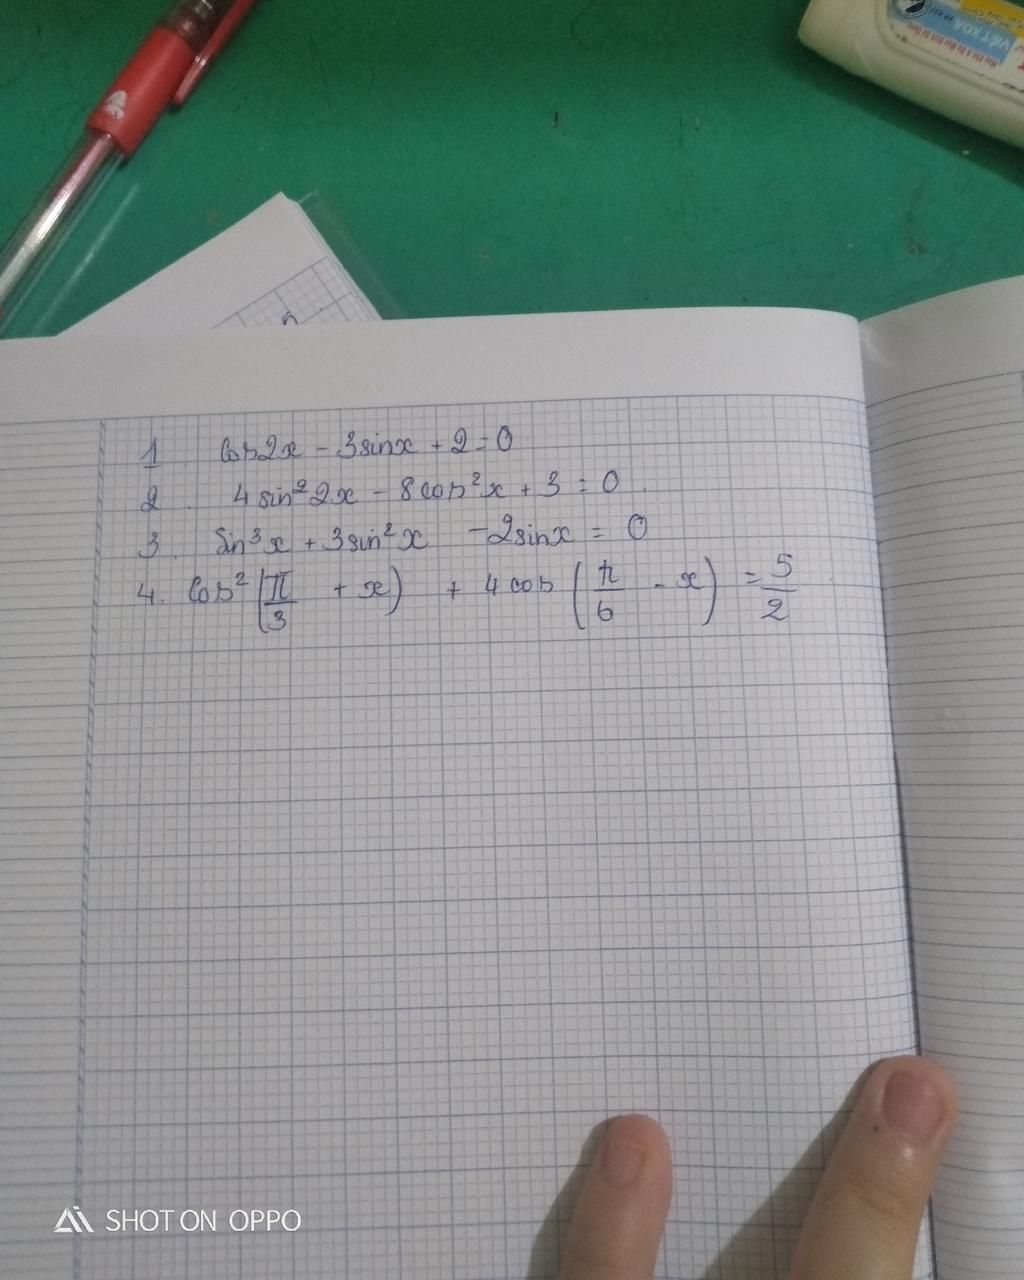 VIẾT XÓA
1 cos2x - 3sinx + 2 = 0
2. 4 sin²2x - 8cos²x + 3 = 0.
3. sin³x + 3sin²x - 2sinx = 0
4. cos² (π/3 + x) + 4 cos (π/6 - x) = 5/2
SHOT ON OPPO